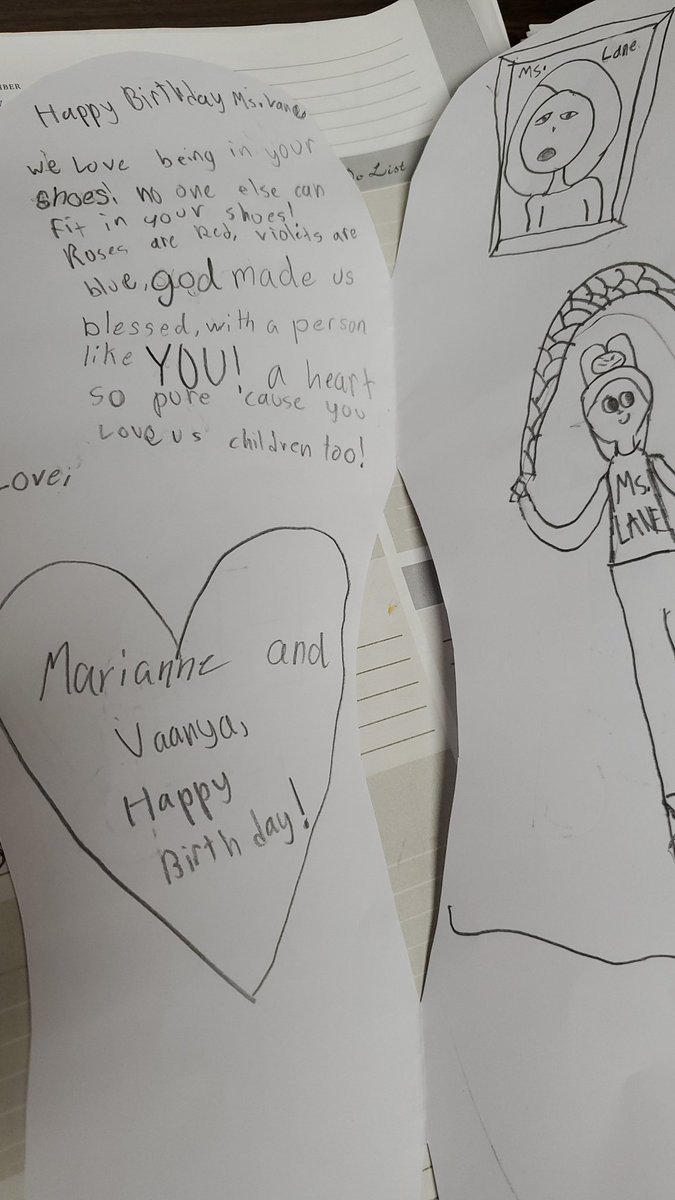 Happy Birthday Ms. Lane,
we Love being in your
shoes! no one else can
Fit in your shoes!
Roses are Red, violets are
blue, god made us
blessed, with a person
like YOU! a heart
so pure 'cause you
Love us children too!
Love;
Marianne and
Vaanya,
Happy
Birthday!
Do List
Ms. Lane
Ms.
LANE